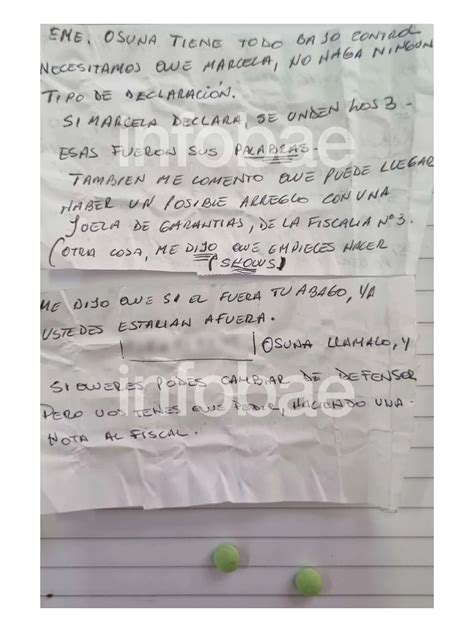 EME. OSUNA TIENE TODO BAJO CONTROL
NECESITAMOS QUE MARCELA, NO HAGA NINGÚN
TIPO DE DECLARACIÓN.
SI MARCELA DECLARA, SE UNDEN LOS 3 -
ESAS FUERON SUS PALABRAS -
TAMBIEN ME COMENTO QUE PUEDE LLEGAR
HABER UN POSIBLE ARREGLO CON UNA
JUEZA DE GARANTIAS, DE LA FISCALIA Nº3.
(OTRA COSA, ME DIJO QUE EMPIECES HACER
(SHOWS)
ME DIJO QUE SI EL FUERA TU ABAGO, YA
USTEDES ESTARIAN AFUERA.
OSUNA LLAMALO, Y
SI QUERES PODES CAMBIAR DE DEFENSOR
PERO VOS TENES QUE PEDIR, HACIENDO UNA
NOTA AL FISCAL.
infobae
infobae